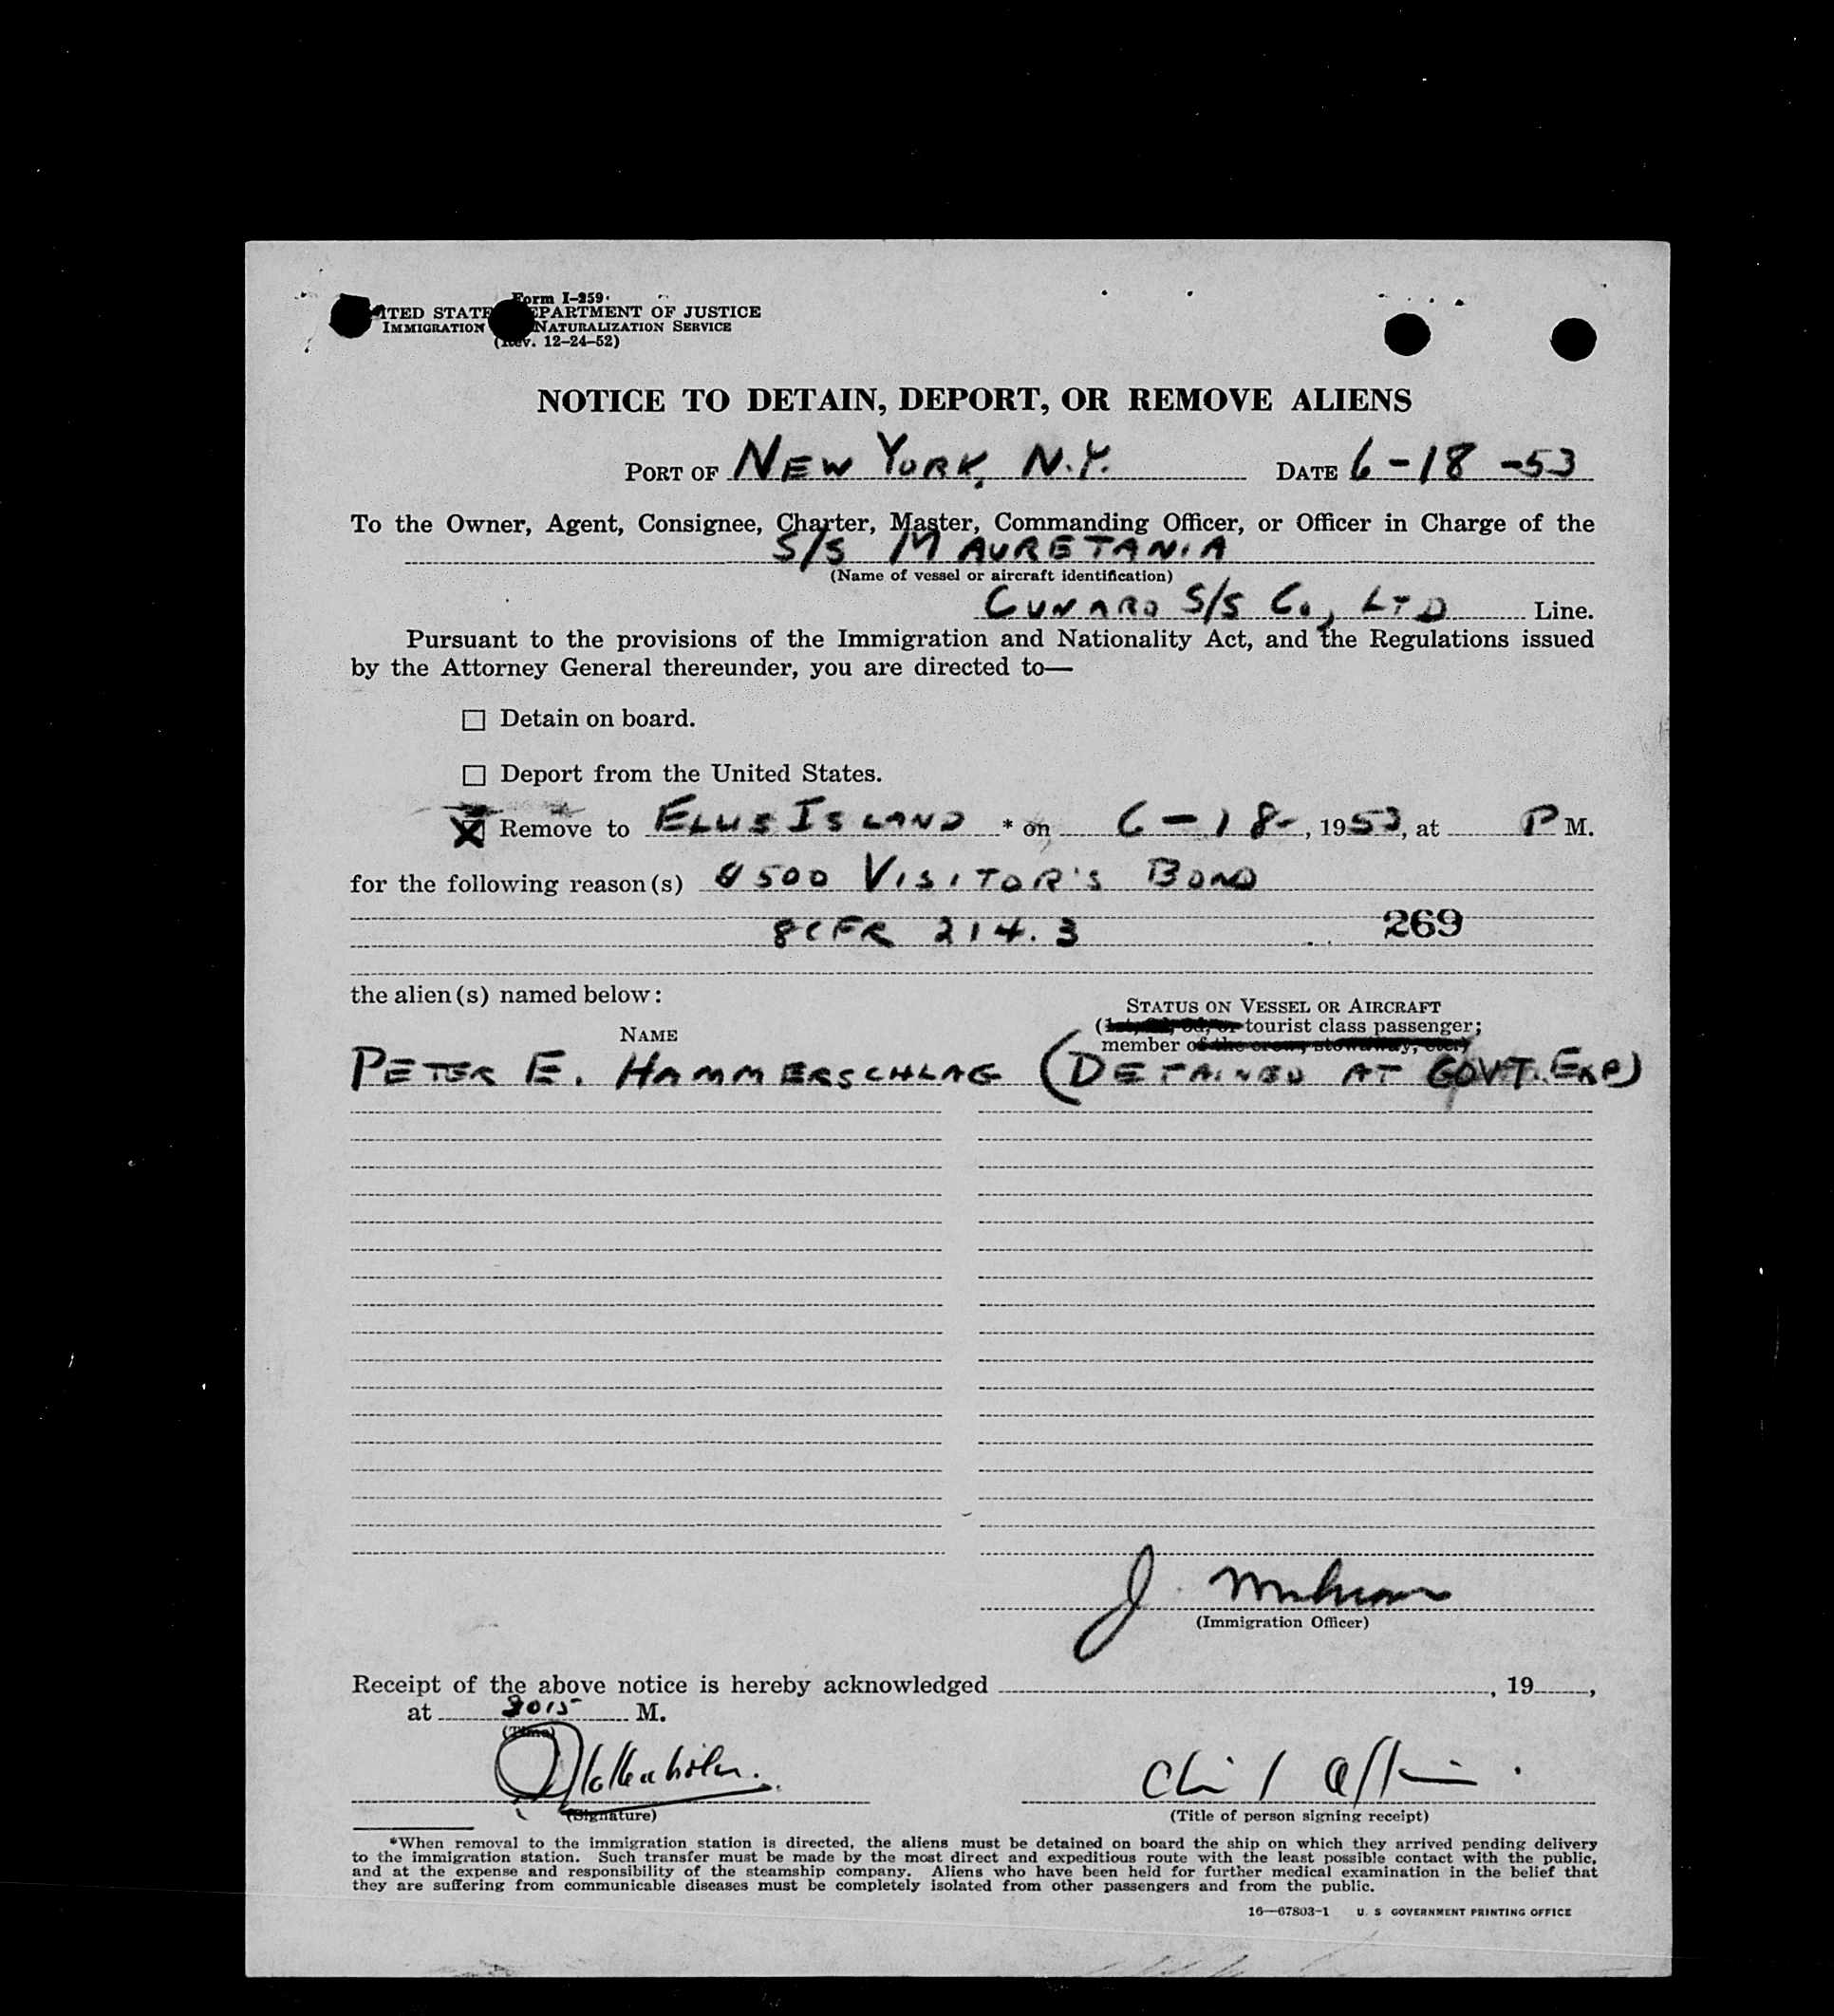 Form I-259
ITED STATE EPARTMENT OF JUSTICE
IMMIGRATION NATURALIZATION SERVICE
(Rev. 12-24-52)
NOTICE TO DETAIN, DEPORT, OR REMOVE ALIENS
PORT OF NEW YORK, N.Y. DATE 6-18-53
To the Owner, Agent, Consignee, Charter, Master, Commanding Officer, or Officer in Charge of the
S/S MAURETANIA
(Name of vessel or aircraft identification)
CUNARD S/S Co., LTD Line.
Pursuant to the provisions of the Immigration and Nationality Act, and the Regulations issued
by the Attorney General thereunder, you are directed to—
☐ Detain on board.
☐ Deport from the United States.
☒ Remove to ELLIS ISLAND * on 6-18-, 1953, at P M.
for the following reason(s) $500 VISITOR'S BOND
8CFR 214.3 269
the alien(s) named below:
STATUS ON VESSEL OR AIRCRAFT
( tourist class passenger;
NAME
member of the crew, stowaway, etc.)
PETER E. HAMMERSCHLAG (DETAINED AT GOVT. EXP)
J.
(Immigration Officer)
Receipt of the above notice is hereby acknowledged , 19 ,
at 2015 M.
(Time)
(Signature)
(Title of person signing receipt)
*When removal to the immigration station is directed, the aliens must be detained on board the ship on which they arrived pending delivery
to the immigration station. Such transfer must be made by the most direct and expeditious route with the least possible contact with the public,
and at the expense and responsibility of the steamship company. Aliens who have been held for further medical examination in the belief that
they are suffering from communicable diseases must be completely isolated from other passengers and from the public.
16—67803-1 U. S GOVERNMENT PRINTING OFFICE